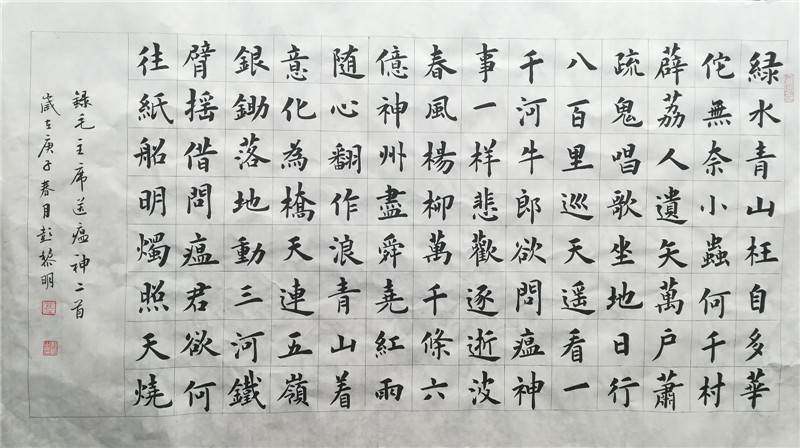 緑水青山枉自多華
佗無奈小蟲何千村
薜荔人遺矢萬户蕭
疏鬼唱歌坐地日行
八百里巡天遥看一
千河牛郎欲問瘟神
事一样悲歡逐逝波
春風楊柳萬千條六
億神州盡舜堯紅雨
随心翻作浪青山着
意化為橋天連五嶺
銀鋤落地動三河鐵
臂摇借問瘟君欲何
往紙船明燭照天燒
錄毛主席送瘟神二首
歲在庚子春月彭黎明